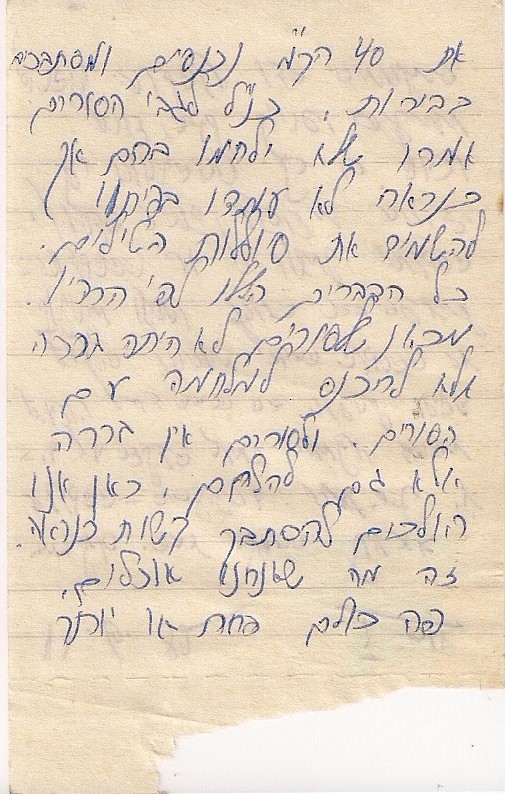 את 40 הק"מ נכנסים ומסתבכים
בבירות. כנ"ל לגבי הסורים
אמרו שלא ילחמו בהם אך
כנראה לא עמדו בפיתוי
להשמיד את סוללות הטילים.
כל הדברים האלו לפי הרדיו.
מכאן שלסורים לא היתה ברירה
אלא להיכנס למלחמה עם
הסורים. ולסורים אין ברירה
אלא גם להלחם. כאן אנו
הולכים להסתבך קשות כנראה.
זה מה שאנחנו אוכלים,
פה כולם פחות או יותר